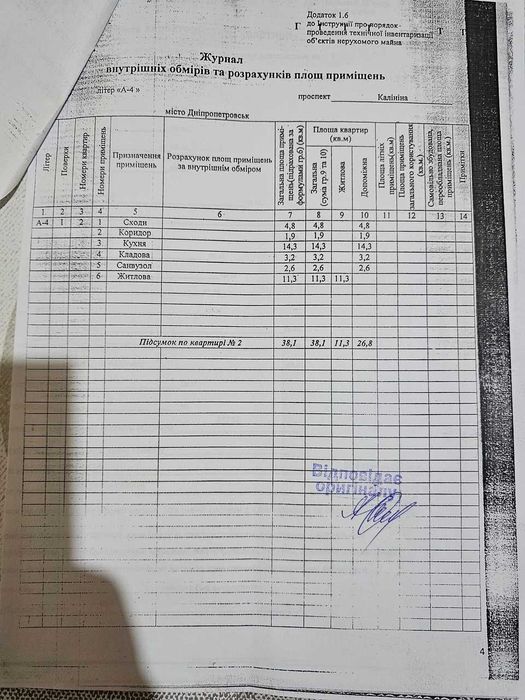 Додаток 1.6
до Інструкції про порядок
проведення технічної інвентаризації
об'єктів нерухомого майна
Журнал
внутрішніх обмірів та розрахунків площ приміщень
літер «А-4 »
проспект Калініна
місто Дніпропетровськ
Літер
Поверхи
Номери квартир
Номери приміщень
Призначення приміщень
Розрахунок площ приміщень за внутрішнім обміром
Загальна площа приміщень(підрахована за формулами гр.6) (кв.м)
Площа квартир (кв.м)
Загальна (сума гр.9 та 10)
Житлова
Допоміжна
Площа літніх приміщень(кв.м)
Площа приміщень загального користування (кв.м)
Самовільно збудована, переобладнана площа приміщень (кв.м.)
Примітки
1 2 3 4 5 6 7 8 9 10 11 12 13 14
А-4 1 2 1 Сходи 4,8 4,8 4,8
2 Коридор 1,9 1,9 1,9
3 Кухня 14,3 14,3 14,3
4 Кладова 3,2 3,2 3,2
5 Санвузол 2,6 2,6 2,6
6 Житлова 11,3 11,3 11,3
Підсумок по квартирі № 2 38,1 38,1 11,3 26,8
Відповідає
оригіналу
4